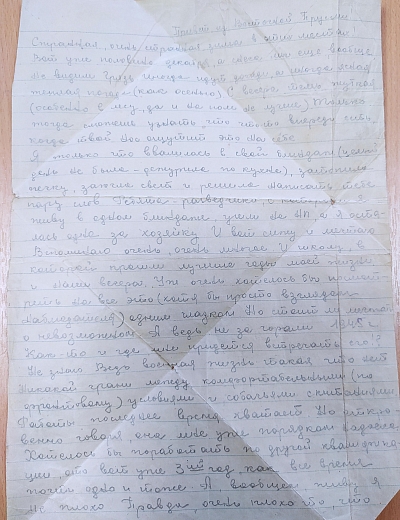 Привет из Восточной Пруссии!
Странная, очень странная зима в этих местах!
Вот уже половина декабря, а снега мы еще вообще
не видим. Грязь иногда идут дожди, а иногда ясная
погода (как осенью) С вечера темь жуткая
(особенно в лесу, да и на поле не лучше) Только
тогда сможешь узнать, что что-то впереди есть,
когда твой нос ощутит это на себе
Я только что ввалилась в свой блиндаж (целый
день не была - дежурила по кухне), затопила
печку, зажгла свет и решила написать тебе
пару слов разведчики, с которыми я
живу в одном блиндаже, ушли на НП, а я оста-
лась одна за хозяйку И вот сижу и мечтаю
Вспоминаю очень, очень многое И школу, в
которой прошли лучшие годы моей жизни
и наши вечера. Уж очень хотелось бы посмот-
реть на все это (хотя бы просто взглядом
наблюдателя) одним глазком Но стоит ли мечтать
о невозможном А ведь не за горами 1945 г.
Как-то и где мне придется встречать его?
Не знаю Ведь военная жизнь такая что нет
никакой грани между комфортабельными (по
фронтовому) условиями и собачьими скитаниями.
Работы последнее время хватает Но откро-
венно говоря, она мне уже порядком надоела.
Хотелось бы поработать по другой квалифика-
ции, ато вот уже 3ий год, как все время
почти одна и тоже. А вообщем живу я
не плохо Правда очень плохо то, что